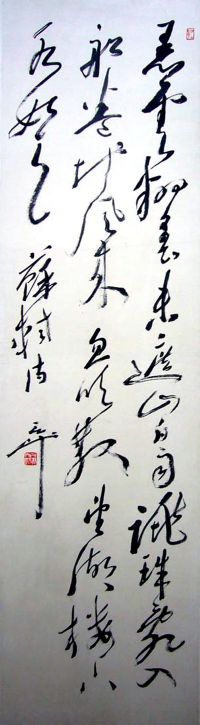 黑雲翻墨未遮山白雨跳珠亂入
船卷地風来忽吹散望湖楼下
水如天
蘇軾诗